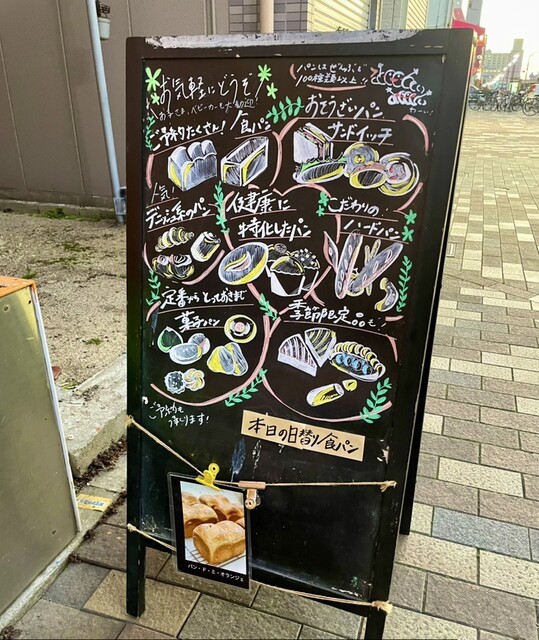 お気軽にどうぞ!
パンはぜんぶで
100種類以上!
わーい!
ご予約たくさん!
食パン
おそうざいパン
サンドイッチ
人気
デニッシュ系のパン
健康に
特化したパン
こだわりの
ハードパン
定番から とっておきまで
菓子パン
季節限定
ご予約も
承ります!
本日の日替り食パン
パン・ド・ミ・オランジェ